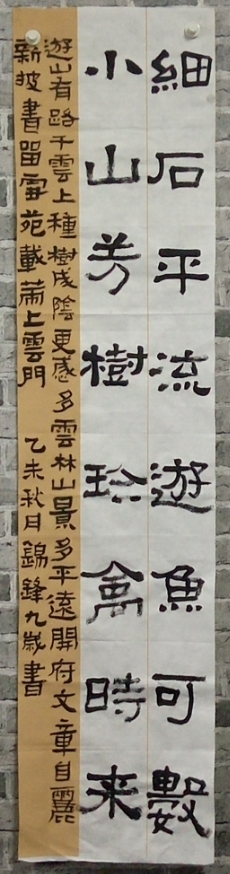 細石平流遊魚可數
小山芳樹珍禽時来
遊山有路千雲上種樹成陰更感多雲林山景多平遠開府文章自麗
新披書留雲苑載荷上雲門 乙未秋月錦鋒九歲書